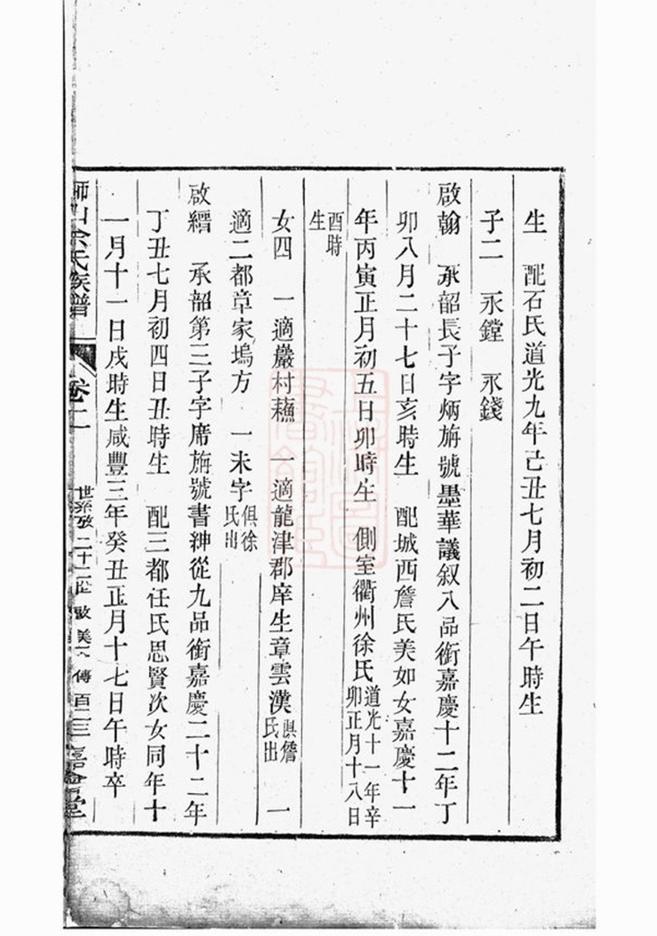 生　配石氏道光九年己丑七月初二日午時生
子二　永鏜　永錢
啟翰　承韶長子字炳旃號墨華議叙八品銜嘉慶十二年丁
卯八月二十七日亥時生　配城西詹氏美如女嘉慶十一
年丙寅正月初五日卯時生　側室衢州徐氏道光十一年辛卯正月十八日
酉時生
女四　一適嚴村蘓　一適龍津郡庠生章雲漢俱詹氏出　一
適二都章家塢方　一未字俱徐氏出
啟縉　承韶第三子字席旃號書紳從九品銜嘉慶二十二年
丁丑七月初四日丑時生　配三都任氏思賢次女同年十
一月十一日戌時生咸豐三年癸丑正月十七日午時卒
余氏族譜　卷二　世系